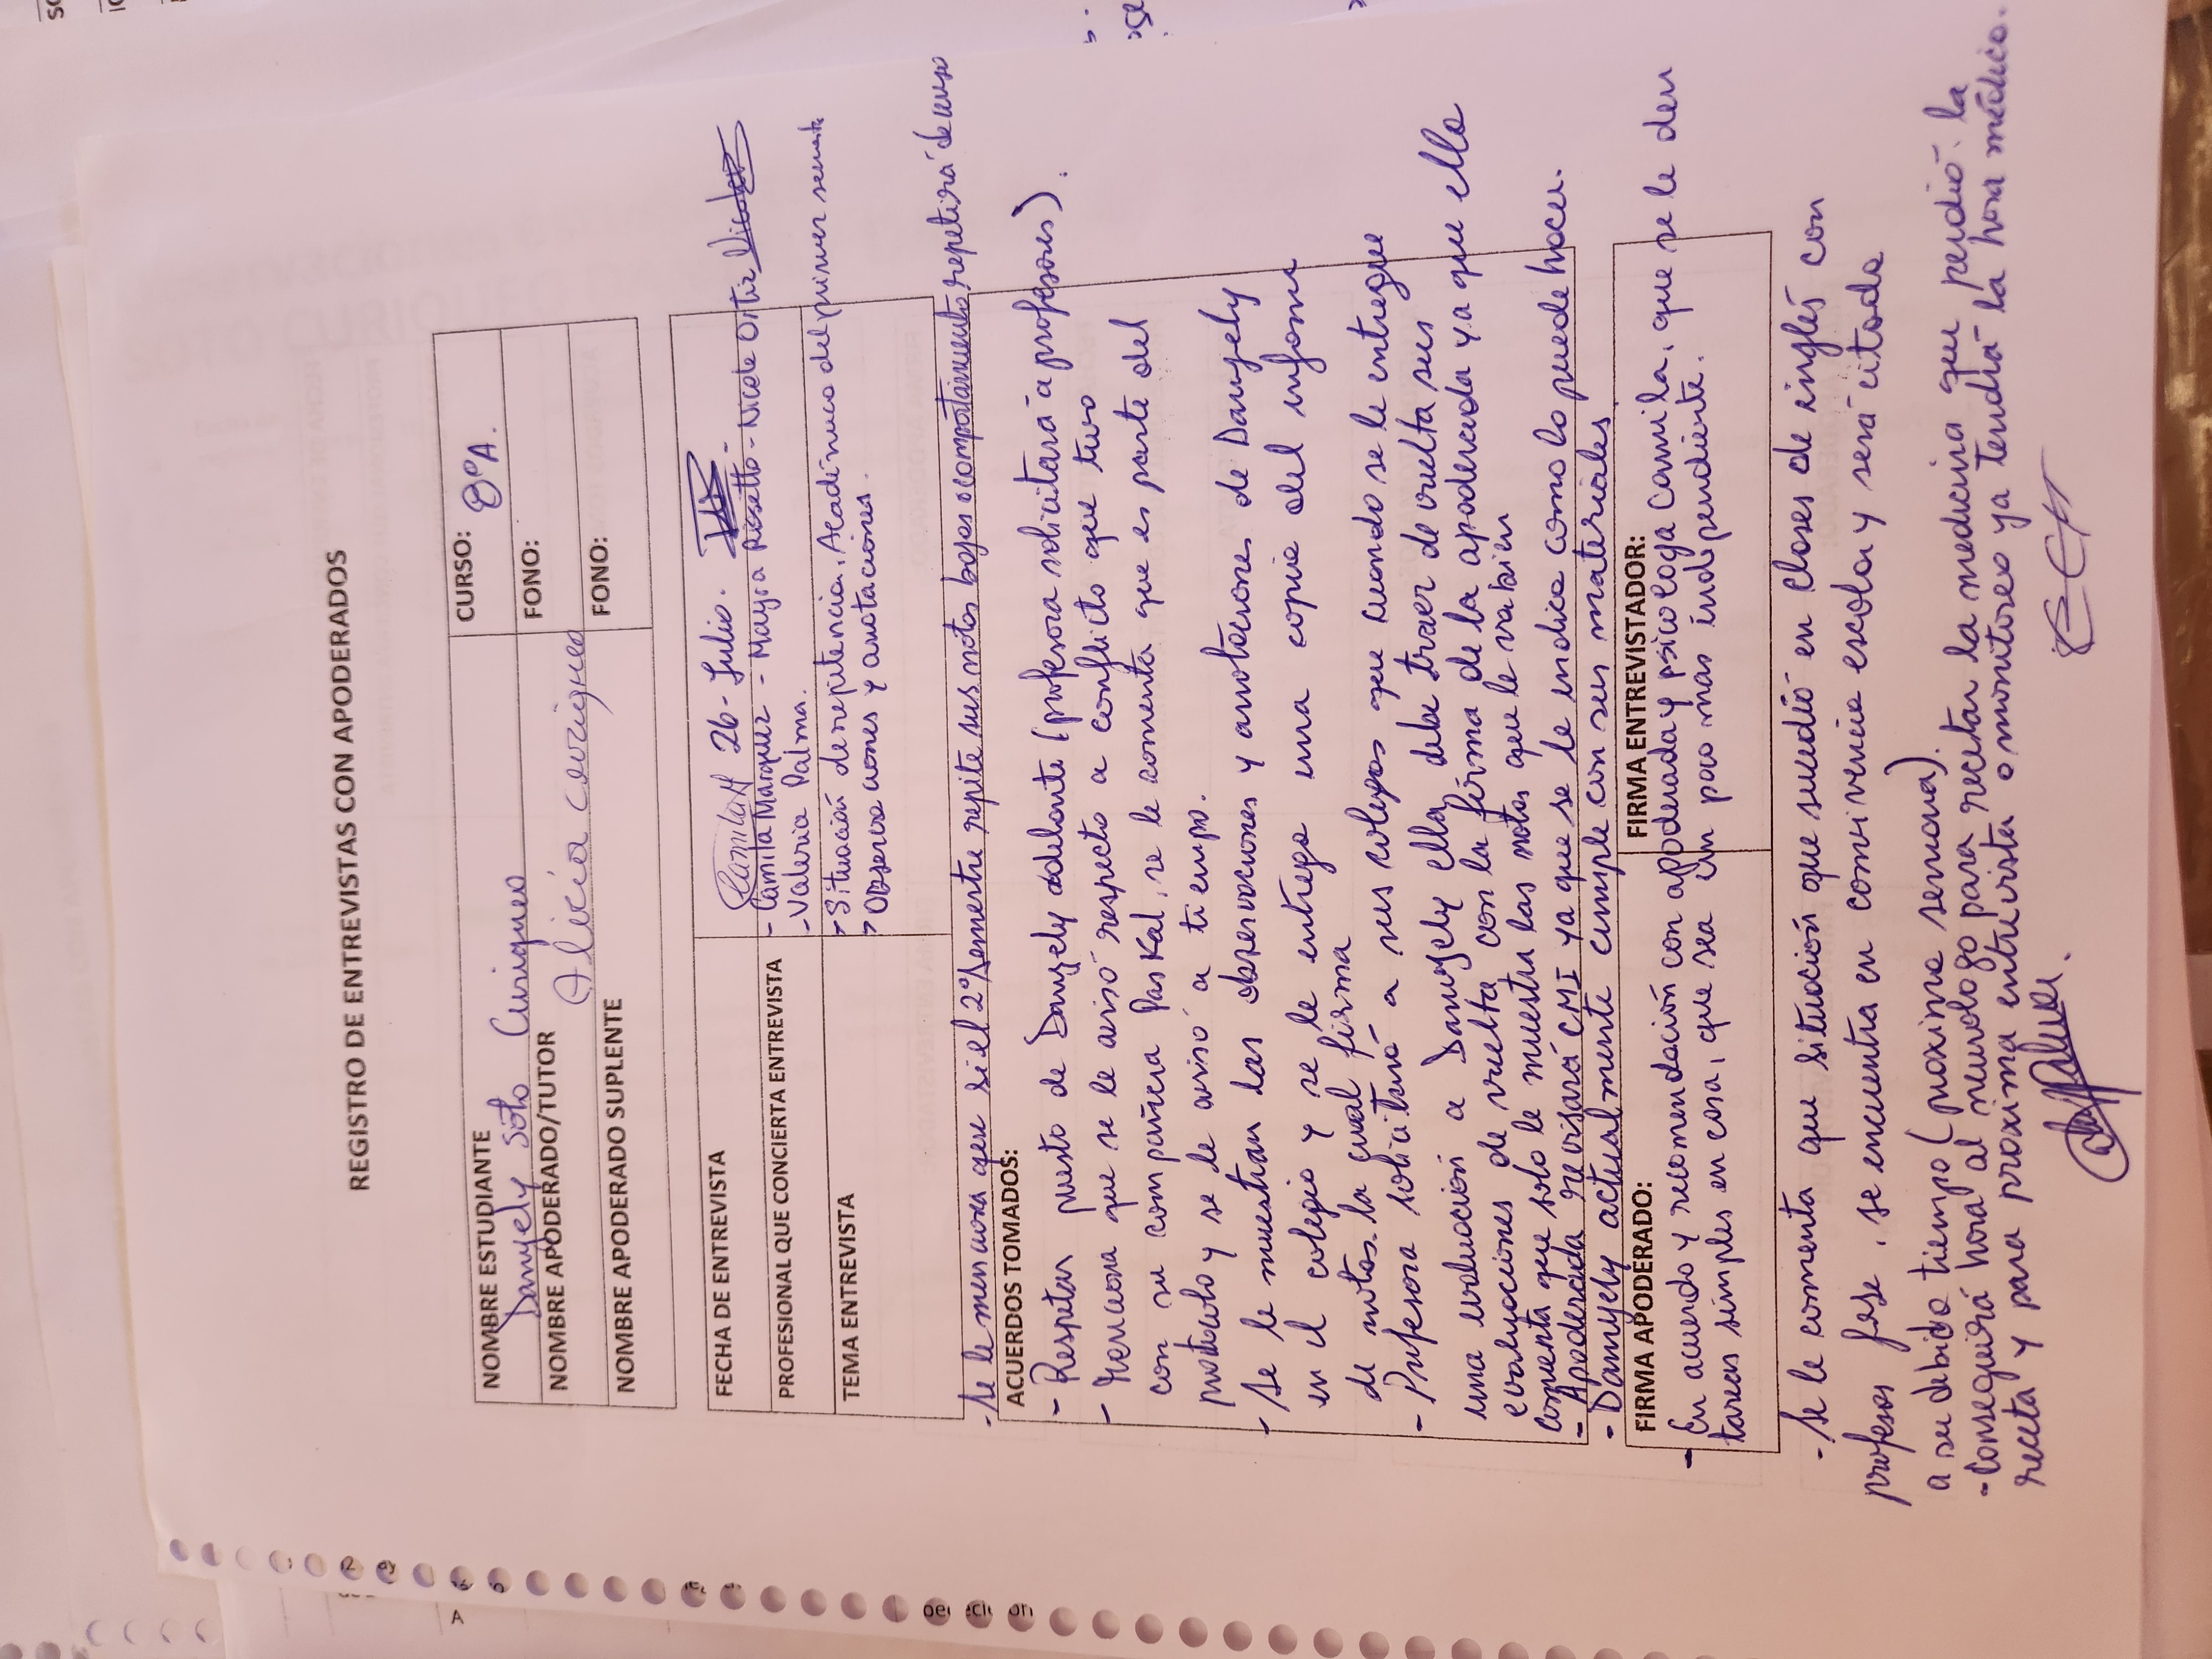 REGISTRO DE ENTREVISTAS CON APODERADOS
NOMBRE ESTUDIANTE
Danyely Soto Curiqueo
CURSO: 8ºA.
NOMBRE APODERADO/TUTOR
Alicia Curiqueo
FONO:
NOMBRE APODERADO SUPLENTE
FONO:
FECHA DE ENTREVISTA
26-Julio.
PROFESIONAL QUE CONCIERTA ENTREVISTA
- Camila Márquez - Mayra Rissetto - Nicole Ortiz
- Valeria Palma.
TEMA ENTREVISTA
→ Situación de repitencia, Académico del primer semestre
→ Observaciones y anotaciones.
- Se le menciona que si el 2º semestre repite sus notas bajas o comportamiento, repetirá de curso
ACUERDOS TOMADOS:
- Respetar puesto de Danyely adelante (profesora solicitará a profesores).
- Menciona que se le avisó respecto a conflicto que tuvo
con su compañera Paskal, se le comenta que es parte del
protocolo y se le avisó a tiempo.
- Se le muestran las observaciones y anotaciones de Danyely
en el colegio y se le entrega una copia del informe
de notas, la cual firma
- Profesora solicitará a sus colegas que cuando se le entregue
una evaluación a Danyely ella debe traer de vuelta sus
evaluaciones de vuelta con la firma de la apoderada ya que ella
comenta que solo le muestra las notas que le va bien
- Apoderada revisará CMI ya que se le indica como lo puede hacer.
- Danyely actualmente cumple con sus materiales
FIRMA APODERADO:
FIRMA ENTREVISTADOR:
- En acuerdo y recomendación con apoderada y psicologa Camila, que se le den
tareas simples en casa, que sea un poco más independiente.
- Se le comenta que situación que sucedió en clases de inglés con
profesor fese, se encuentra en convivencia escolar y será citada
a su debido tiempo (proxima semana).
- Conseguirá hora al neurologo para recetar la medicina que perdió la
receta y para proxima entrevista o monitoreo ya tendrá la hora médica.